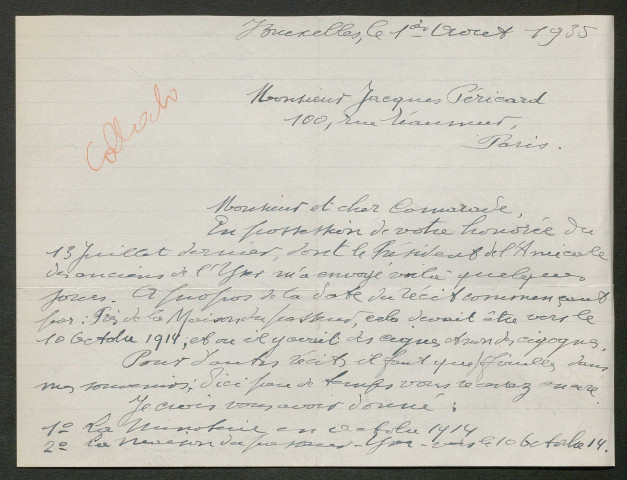 Bruxelles, le 1er Aout 1935
Monsieur Jacques Péricard
100, rue Réaumur,
Paris.
Monsieur et cher Camarade,
En possession de votre honorée du
13 Juillet dernier, dont le Président de l'Amicale
des anciens de l'Yser m'a envoyé voilà quelques
jours. A propos de la date du récit commençant
par: Près de la Maison du passeur, cela devait être vers le
10 Octobre 1914, et où il y avait des cignes et non des cigognes.
Pour d'autres récits il faut que je fouille dans
mes souvenirs; d'ici peu de temps vous recevrez encore.
Je crois vous avoir donné:
1º La Minoterie en Octobre 1914
2º La maison du passeur - Yser - vers le 10 Octobre 14.